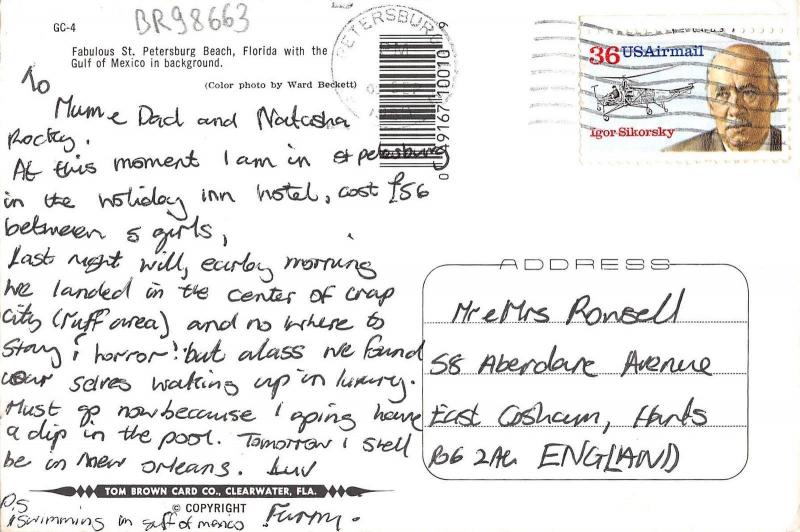 BR98663
GC-4
Fabulous St. Petersburg Beach, Florida with the
Gulf of Mexico in background.
(Color photo by Ward Beckett)
PETERSBURG
PM
0 49167 10010 6
36 USAirmail
Igor Sikorsky
To
Mum e Dad and Natasha
Rocky.
At this moment I am in st petersburg
in the Holiday inn hotel, cost £56
between 5 girls,
Last night will, earlby morning
we landed in the center of crap
city (ruff area) and no where to
stay i horror! but alass we found
our selves waking up in luxury.
Must go now because I going have
a dip in the pool. Tomorrow i shell
be in New Orleans. Luv
P.S
i swimming in gulf of mexico
ADDRESS
Mr e Mrs Ronsell
58 Aberdare Avenue
East Cosham, Hants
PO6 2AU ENGLAND
TOM BROWN CARD CO., CLEARWATER, FLA.
© COPYRIGHT